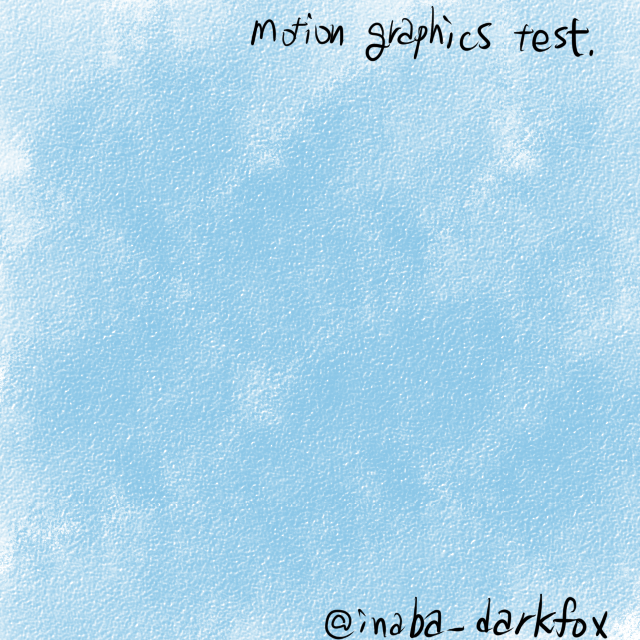 motion graphics test.
@inaba_darkfox